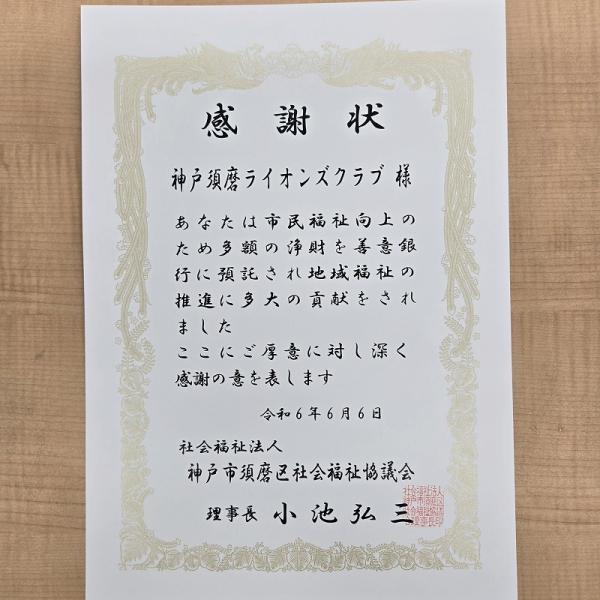 感謝状
神戸須磨ライオンズクラブ 様
あなたは市民福祉向上の
ため多額の浄財を善意銀
行に預託され地域福祉の
推進に多大の貢献をされ
ました
ここにご厚意に対し深く
感謝の意を表します
令和6年6月6日
社会福祉法人
神戸市須磨区社会福祉協議会
理事長 小池弘三